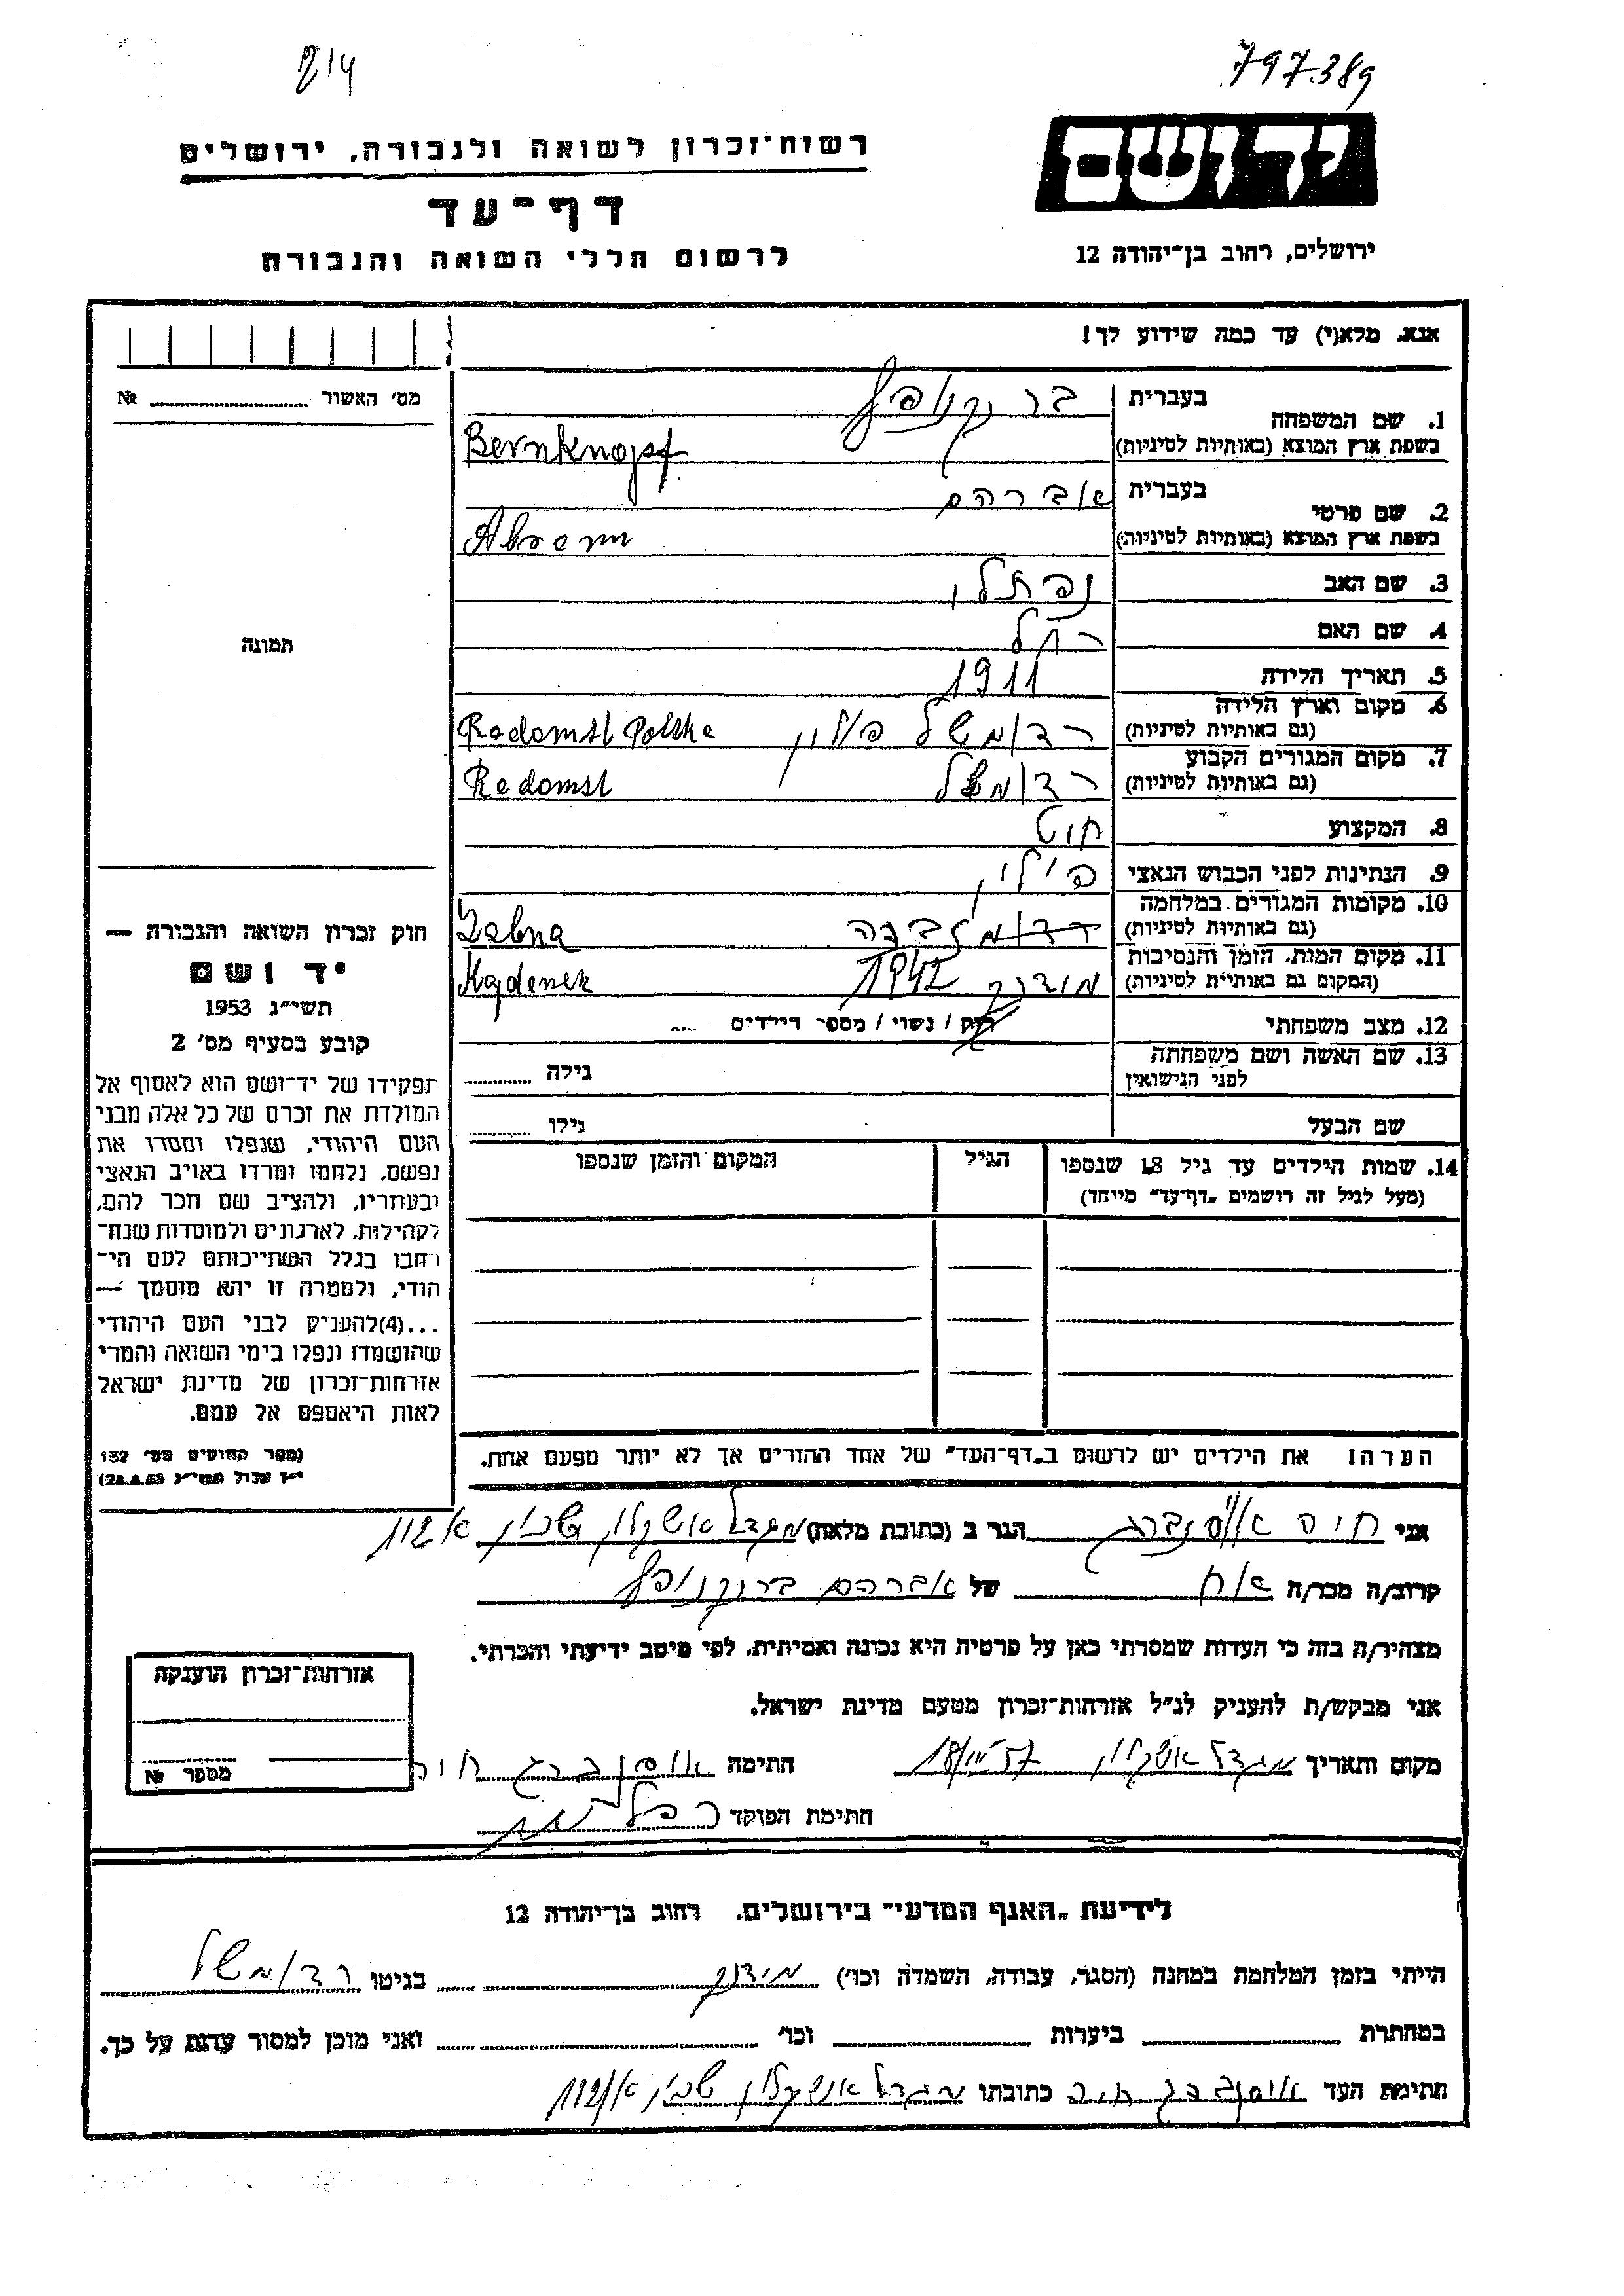 214
797.389
יד ושם
רשות־זכרון לשואה ולגבורה, ירושלים
דף־עד
לרשום חללי השואה והגבורה
ירושלים, רחוב בן־יהודה 12
אנא, מלא(י) עד כמה שידוע לך!
מס׳ האשור № 
1. שם המשפחה
בעברית ברנקנופף
בשפת ארץ המוצא (באותיות לטיניות) Bernknopf
2. שם פרטי
בעברית אברהם
בשפת ארץ המוצא (באותיות לטיניות) Abram
3. שם האב נפתלי
4. שם האם רחל
5. תאריך הלידה 1911
6. מקום וארץ הלידה
(גם באותיות לטיניות) רדומשל פולין Radomsl Polska
7. מקום המגורים הקבוע
(גם באותיות לטיניות) רדומשל Radomsl
8. המקצוע
9. הנתינות לפני הכבוש הנאצי פולין
10. מקומות המגורים במלחמה
(גם באותיות לטיניות)
11. מקום המות, הזמן והנסיבות
(המקום גם באותיות לטיניות) 1942 Majdanek
12. מצב משפחתי רוק / נשוי / מספר הילדים
13. שם האשה ושם משפחתה
לפני הנישואין גילה
שם הבעל גילו
14. שמות הילדים עד גיל 18 שנספו
(מעל לגיל זה רושמים „דף־עד״ מיוחד)
הגיל
המקום והזמן שנספו
הערה! את הילדים יש לרשום ב„דף־העד״ של אחד ההורים אך לא יותר מפעם אחת.
תמונה
חוק זכרון השואה והגבורה —
יד ושם
תשי״ג 1953
קובע בסעיף מס׳ 2
תפקידו של יד־ושם הוא לאסוף אל
המולדת את זכרם של כל אלה מבני
העם היהודי, שנפלו ומסרו את
נפשם, נלחמו ומרדו באויב הנאצי
ובעוזריו, ולהציב שם וזכר להם,
לקהילות, לארגונים ולמוסדות שנח־
רבו בגלל השתייכותם לעם הי־
הודי, ולמטרה זו יהא מוסמך —
...(4) להעניק לבני העם היהודי
שהושמדו ונפלו בימי השואה והמרי
אזרחות־זכרון של מדינת ישראל
לאות היאספם אל עמם.
(ספר החוקים מס׳ 132
אני חיה הגר ב (כתובת מלאה) מגדל אשקלון שכון א
קרוב/ה מכר/ה אח של אברהם ברנקנופף
מצהיר/ה בזה כי העדות שמסרתי כאן על פרטיה היא נכונה ואמיתית, לפי מיטב ידיעתי והכרתי.
אני מבקש/ת להעניק לנ״ל אזרחות־זכרון מטעם מדינת ישראל.
מקום ותאריך מגדל אשקלון חתימה חיה
חתימת הפוקד
אזרחות־זכרון הוענקה
מספר №
לידיעת „האגף המדעי״ בירושלים, רחוב בן־יהודה 12
הייתי בזמן המלחמה במחנה (הסגר, עבודה, השמדה וכו׳) בגיטו רדומשל
במחתרת ביערות וכו׳ ואני מוכן למסור עדות על כך.
חתימת העד חיה כתובתו מגדל אשקלון שכון א